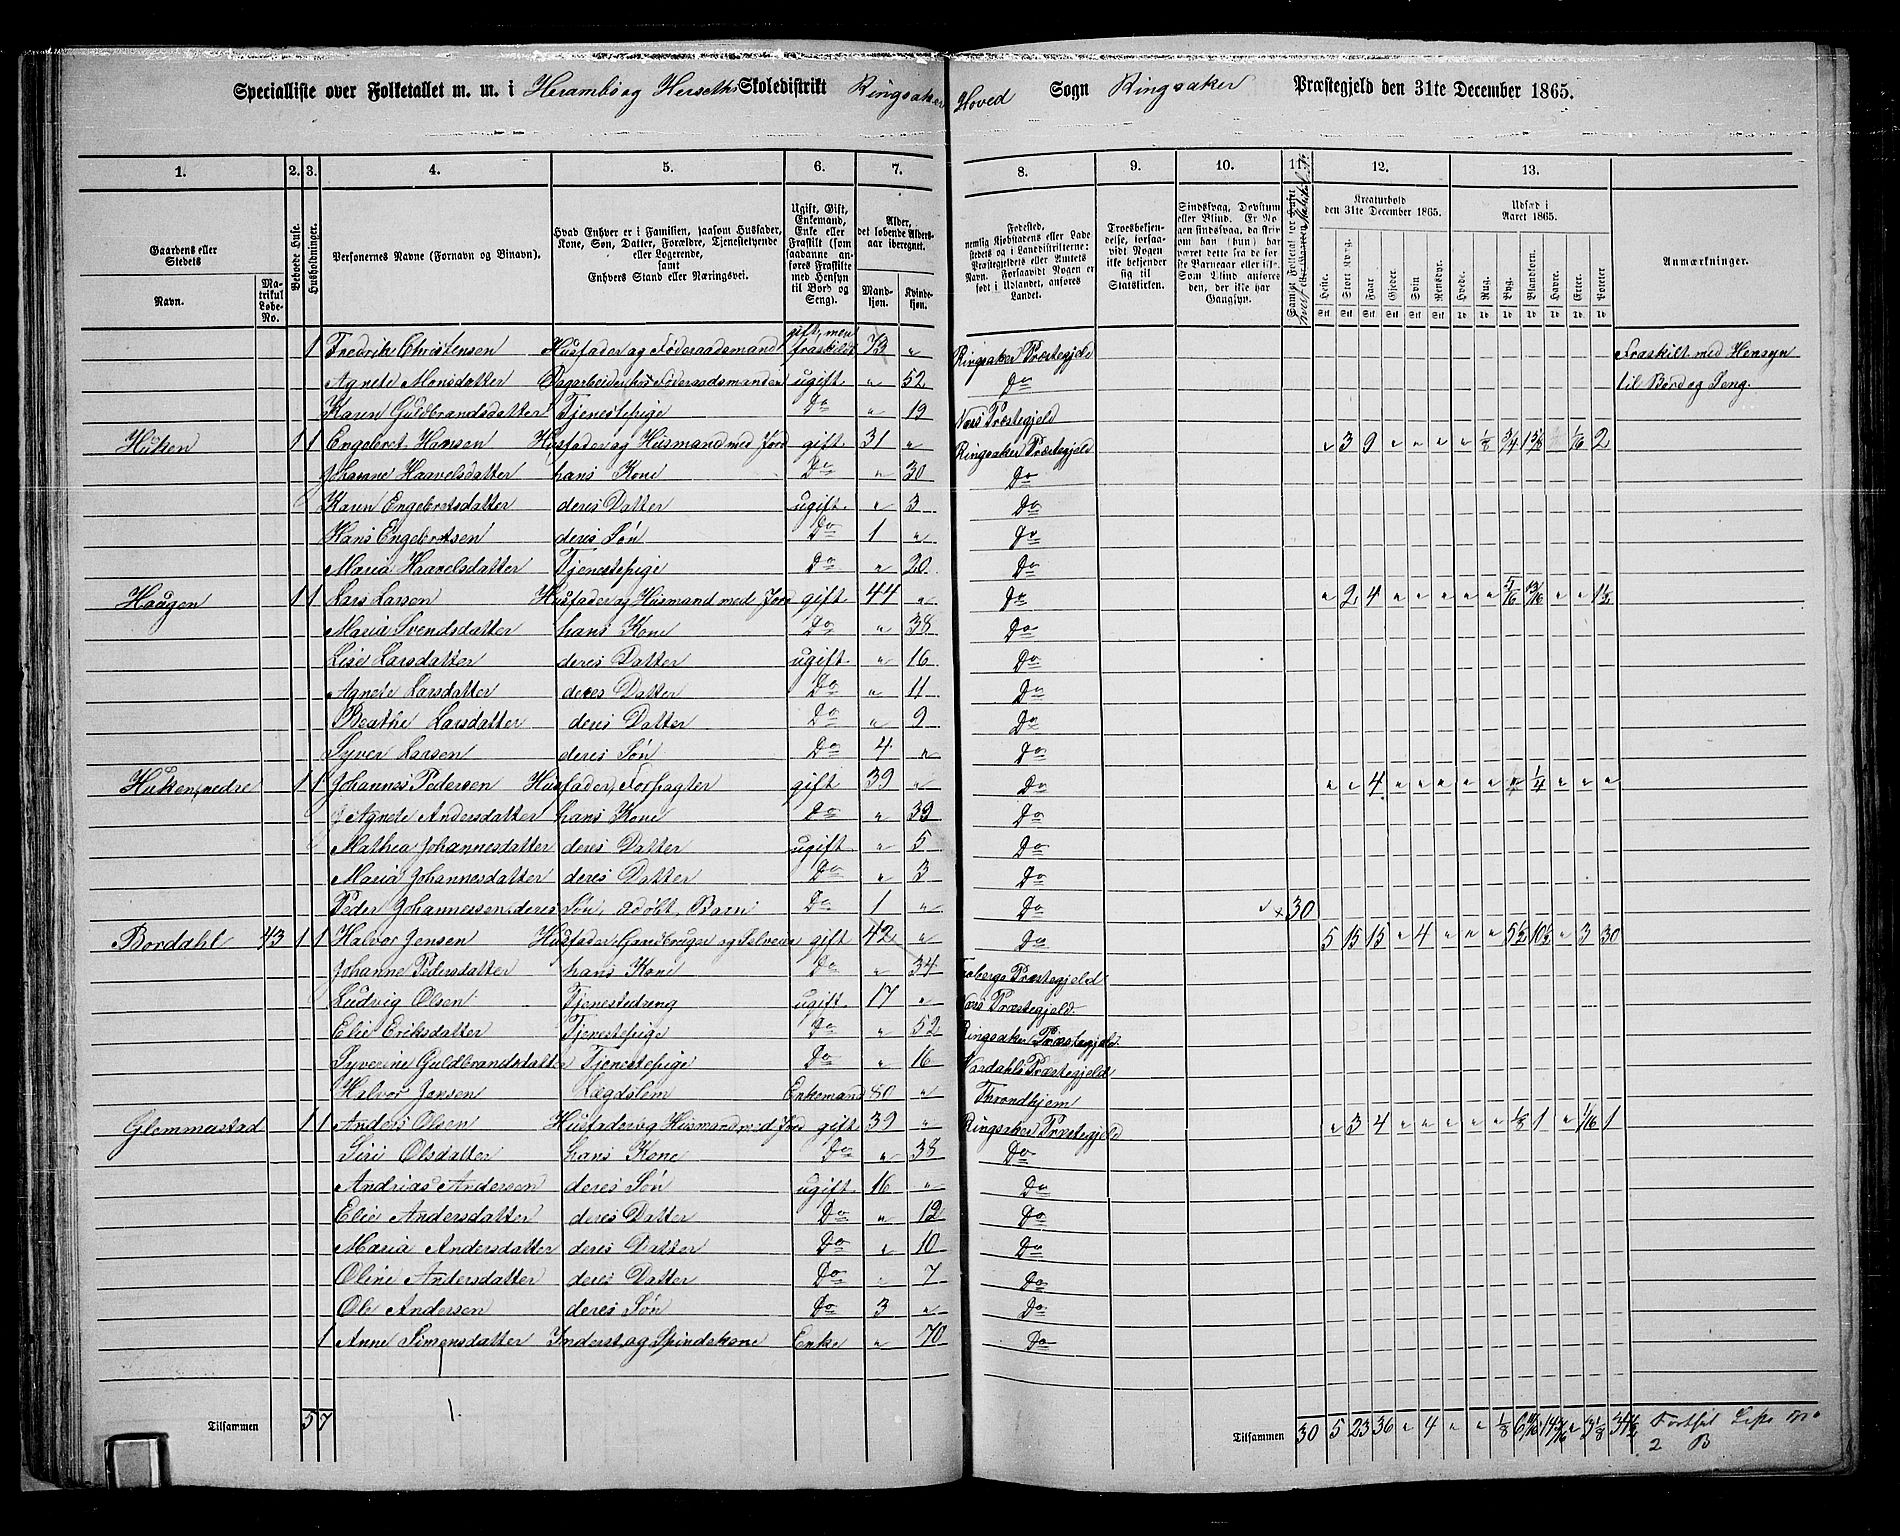 Specialliste over Folketallet m. m. i Heramb og Herseth Skoledistrikt Ringsaker Hoved Sogn Ringsaker Præstegjeld den 31te December 1865.
1. 2. 3. 4. 5. 6. 7. 8. 9. 10. 11. 12. 13.
Gaardenes eller Stedets
Navn. Matrikul Løbe-No.
Beboede Huse.
Husholdninger.
Personernes Navne (Fornavn og Binavn).
Hvad Enhver er i Familien, saasom Husfader, Kone, Søn, Datter, Forældre, Tjenestetyende eller Logerende, samt Enhvers Stand eller Næringsvei.
Ugift, Gift, Enkemand, Enke eller Fraskilt (som saadanne anføres Fraskilte med Hensyn til Bord og Seng).
Alder, det løbende Aldersaar iberegnet.
Mandkjøn. Kvindekjøn.
Fødested, nemlig Kjøbstadens eller Ladestedets og i Landdistrikterne: Præstegjeldets eller Amtets Navn. Forsaavidt Nogen er født i Udlandet, anføres Landet.
Troesbekjendelse, forsaavidt Nogen ikke bekjender sig til Statskirken.
Sindssvag, Døvstum eller Blind.
Kreaturhold den 31te December 1865.
Udsæd i Aaret 1865.
Heste. Stort Kvæg. Faar Gjeder. Svin Rensdyr. Hvede. Rug. Byg. Blandkorn. Havre. Erter. Poteter
Anmærkninger.
1 Fredrik Christensen Husfader og Føderaadsmand gift, men fraskildt 73 " Ringsaker Præstegjeld Fraskilt med Hensyn
Agnete Monsdatter Dagarbeider hos Føderaadsmanden ugift " 52 Do til Bord og Seng.
Karen Guldbrandsdatter Tjenestepige Do " 19 Næs Præstegjeld
Huken 1 1 Engebret Hansen Husfader og Husmand med Jord gift 31 " Ringsaker Præstegjeld " 3 9 " " " " 1/8 3/4 1 1/2 1/16 2
Johanne Haavelsdatter hans Kone Do " 30 Do
Karen Engebretsdatter deres Datter ugift " 3 Do
Hans Engebretsen deres Søn Do 1 " Do
Maria Haavelsdatter Tjenestepige Do " 20 Do
Haugen 1 1 Lars Larsen Husfader og Husmand med Jord gift 44 " Do " 2 4 " " " " " 5/16 13/16 " " 1 1/2
Maria Svendsdatter hans Kone Do " 38 Do
Lise Larsdatter deres Datter ugift " 16 Do
Agnete Larsdatter deres Datter Do " 11 Do
Beathe Larsdatter deres Datter Do " 9 Do
Syver Larsen deres Søn Do 4 " Do
Huken, nedre 1 1 Johannes Pedersen Husfader, Forpagter gift 39 " Do " " 4 " " " " " " 1/4 " " "
Agnete Andersdatter hans Kone Do " 39 Do
Mathea Johannesdatter deres Datter ugift " 5 Do
Maria Johannesdatter deres Datter Do " 3 Do
Peder Johannessen deres Søn, udøbt Barn Do 1 " Do 30
Bordahl 43 1 1 Halvor Jensen Husfader, Gaardbruger og Selveier gift 42 " Do 5 15 15 " 4 " " " 5 1/2 10 1/2 " 3 30
Johanne Pedersdatter hans Kone Do " 34 Præstegjeld
Ludvig Olsen Tjenestedreng ugift 17 " Næs Præstegjeld
Elie Eriksdatter Tjenestepige Do " 52 Ringsaker Præstegjeld
Syverine Guldbrandsdatter Tjenestepige Do " 16 Vardahls Præstegjeld
Halvor Jensen Lægdslem Enkemand 80 " Throndhjem
Glommerstad 1 1 Anders Olsen Husfader og Husmand med Jord gift 39 " Ringsaker Præstegjeld " 3 4 " " " " " 1/8 1 " 1/16 1
Siri Olsdatter hans Kone Do " 38 Do
Andrias Andersen deres Søn ugift 16 " Do
Elie Andersdatter deres Datter Do " 12 Do
Maria Andersdatter deres Datter Do " 10 Do
Oline Andersdatter deres Datter Do " 7 Do
Ole Andersen deres Søn Do 3 " Do
1 Anne Simensdatter Inderst og Spindekone Enke " 70 Do
Tilsammen 5 7 Tilsammen 30 5 23 36 " 4 " " 1/8 " 3 1/8
2 B